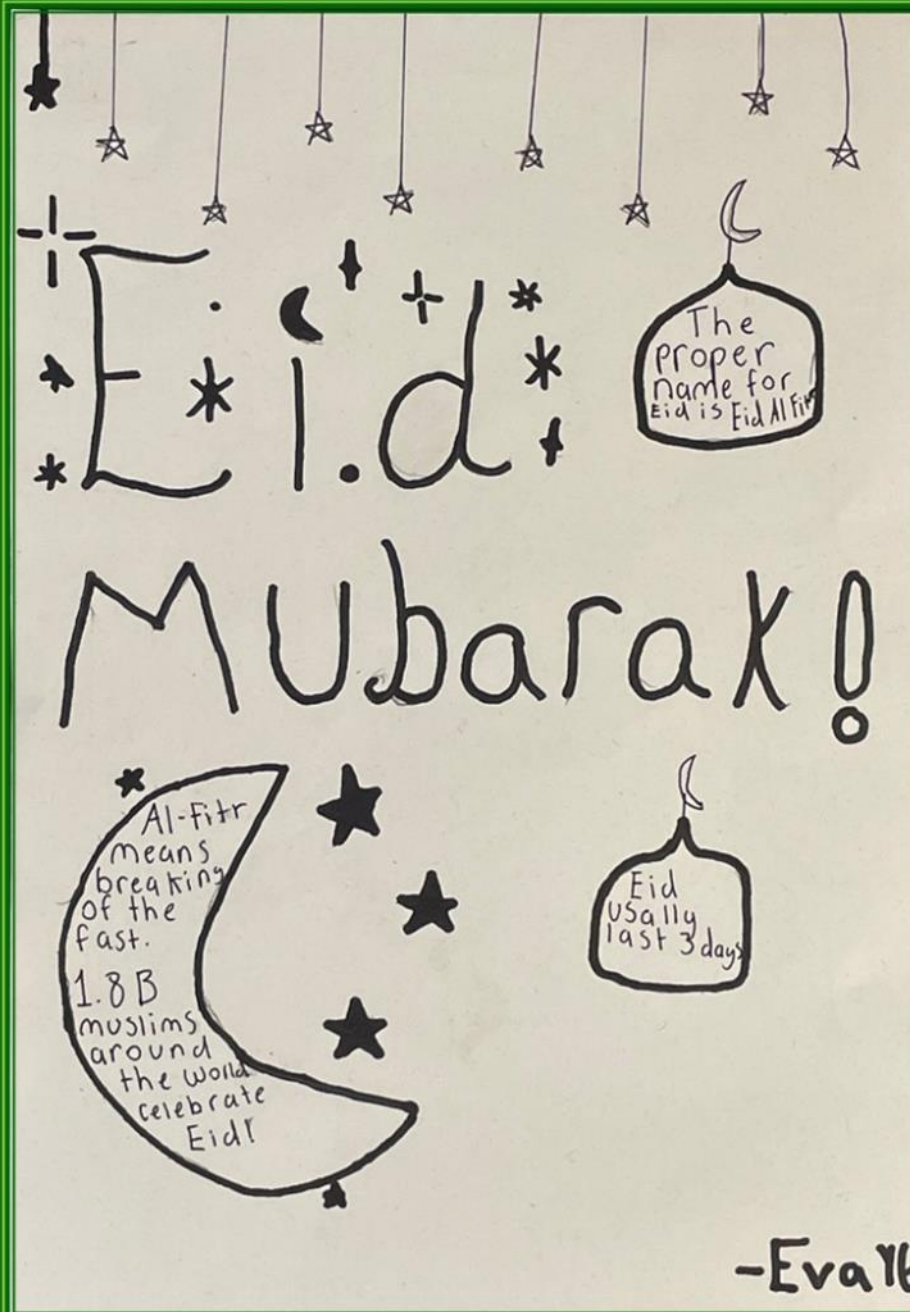 Eid
Mubarak!
The
proper
name for
Eid is Eid Al Fitr
Al-Fitr
means
breaking
of the
fast.
1.8 B
muslims
around
the world
celebrate
Eid!
Eid
Usally
last 3 days
-Eva Y6